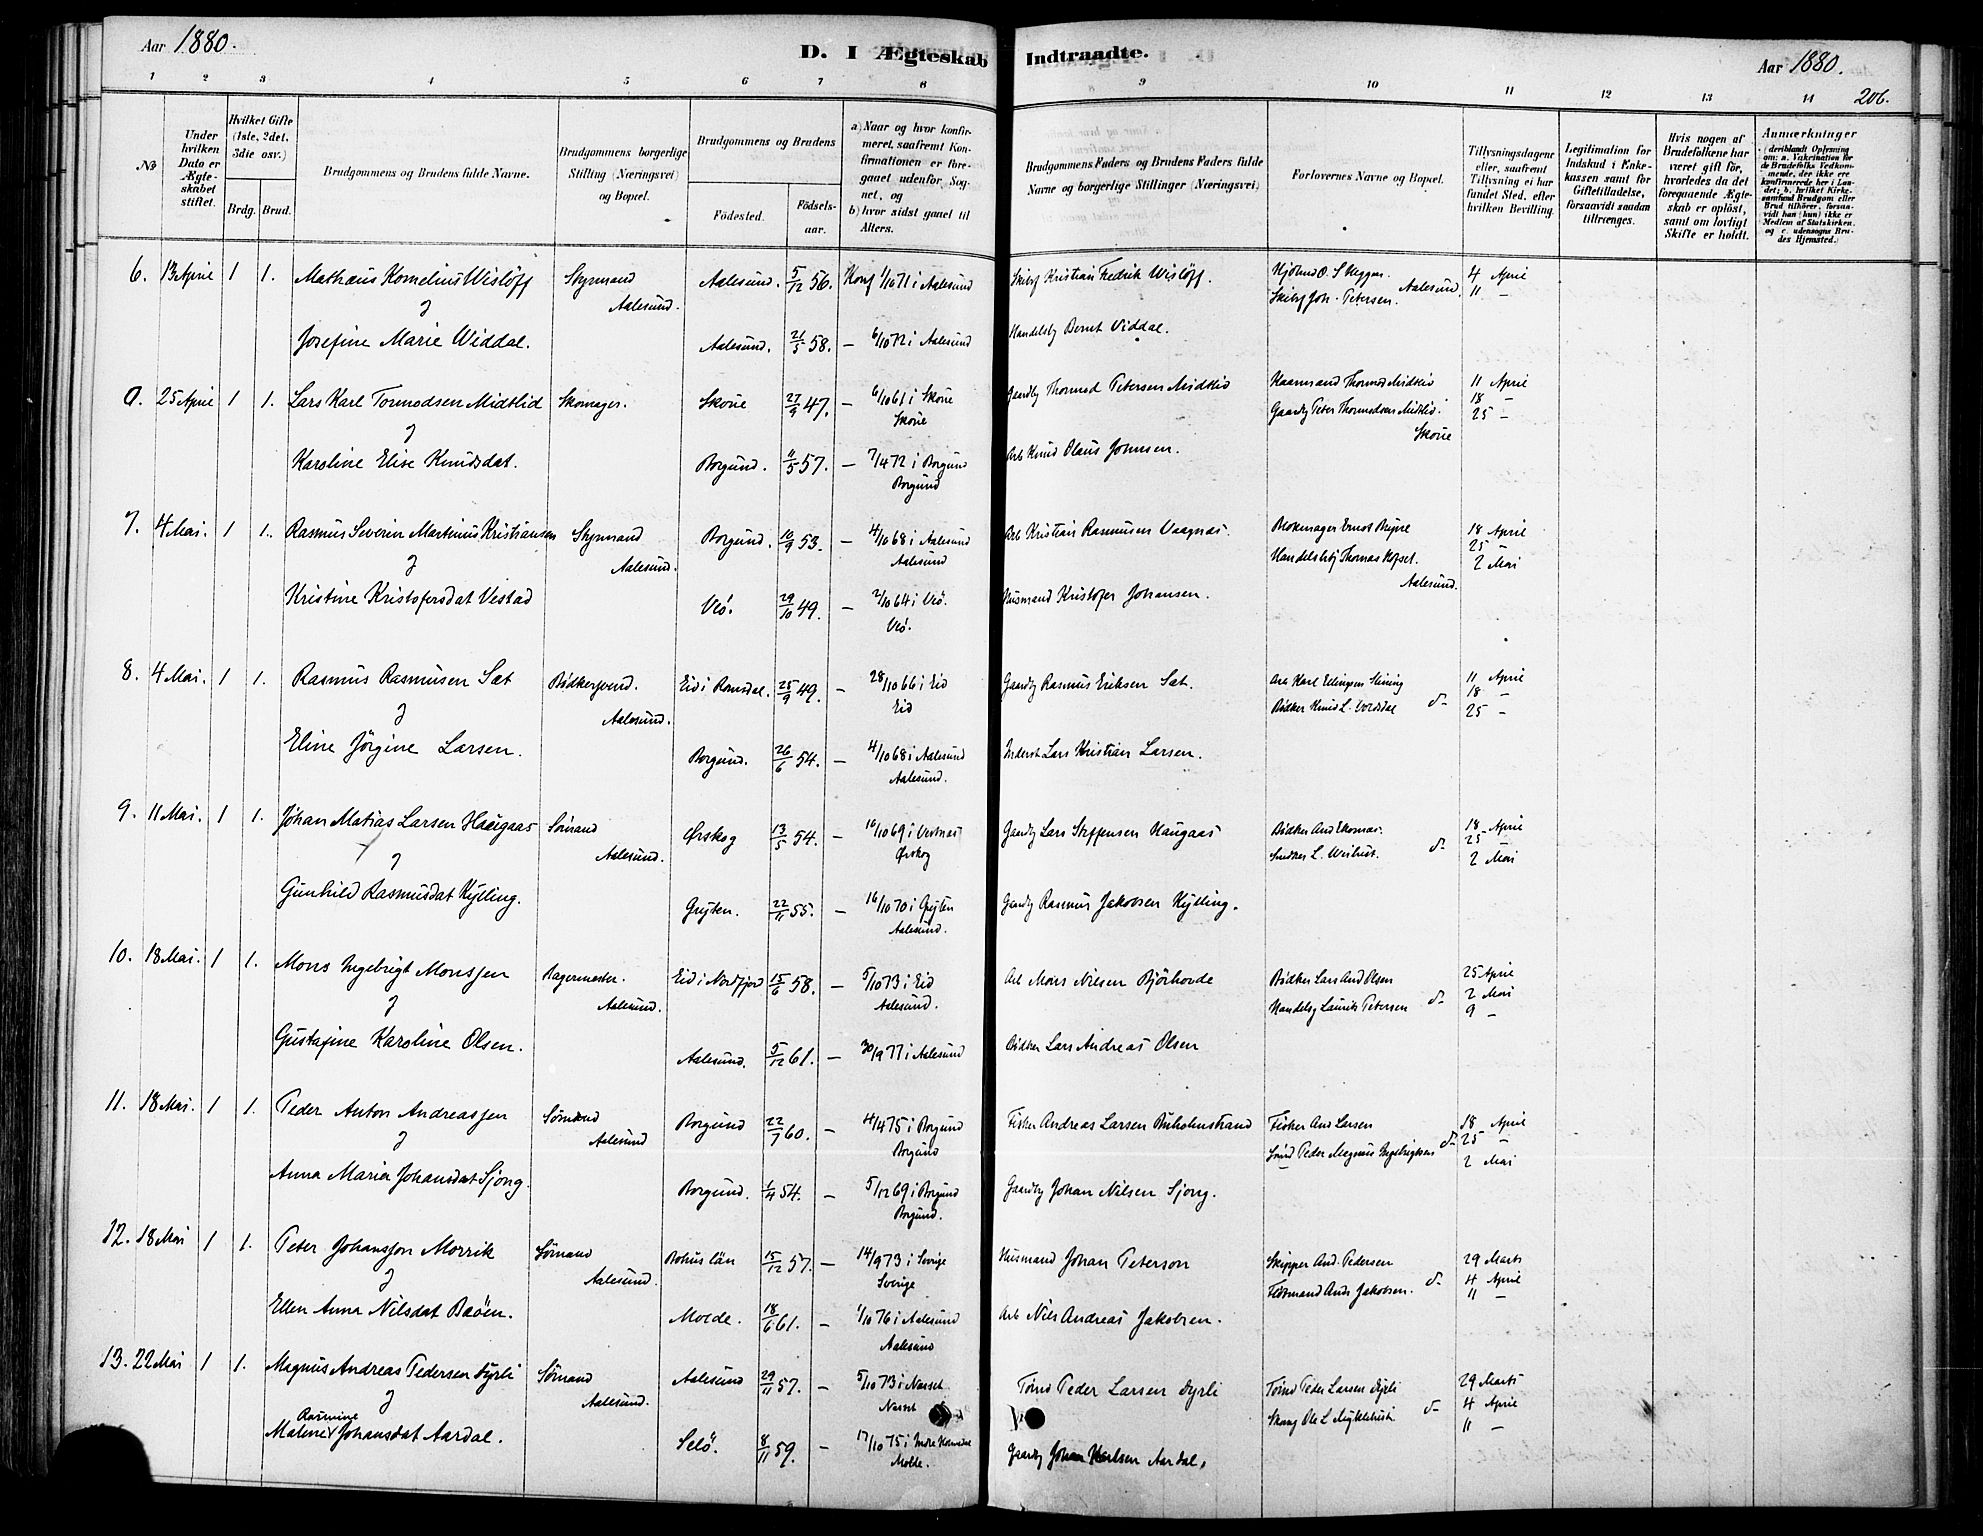 Aar 1880.
D. I Ægteskab Indtraadte.
Aar 1880.
206.
1 2 3 4 5 6 7 8 9 10 11 12 13 14
No
Under hvilken Dato er Ægteskabet stiftet.
Hvilket Gifte (1ste, 2det, 3die osv.)
Brdg. Brud.
Brudgommens og Brudens fulde Navne.
Brudgommens borgerlige Stilling (Næringsvei) og Bopæl.
Brudgommens og Brudens
Fødested.
Fødselsaar.
a) Naar og hvor konfirmeret, saafremt Konfirmationen er foregaaet udenfor Sognet, og
b) hvor sidst gaaet til Alters.
Brudgommens Faders og Brudens Faders fulde Navne og borgerlige Stillinger (Næringsvei)
Forlovernes Navne og Bopæl.
Tillysningsdagene eller, saafremt Tillysning ei har fundet Sted, efter hvilken Bevilling.
Legitimation for Indskud i Enkekassen samt for Giftetilladelse, forsaavidt saadan tiltrænges.
Hvis nogen af Brudefolkene har været gift før, hvorledes da det foregaaende Ægteskab er opløst, samt om lovligt Skifte er holdt.
Anmærkninger (deriblandt Oplysning om: a. Vakcination for de Brudefolks Vedkommende, der ikke ere konfirmerede her i Landet; b. hvilket Kirkesamfund Brudgom eller Brud tilhører, forsaavidt han (hun) ikke er Medlem af Statskirken, og c. udensogns Brudes Hjemsted.)
6. 13 April 1 1. Mathæus Kornelius Wisløff Styrmand Aalesund. Aalesund. 5/12 56. Konf 1/10 71 i Aalesund Skibsf Kristian Fredrik Wisløff. Aalesund. 4 April
Skibsf Joh. Petersen. 11 –
&
Josefine Marie Widdal. Aalesund. 21/5 58. – 6/10 72 i Aalesund Handelsb Bernt Viddal.
0. 25 April 1 1. Lars Karl Tormodsen Midtlid Skomager. Skoue 27/9 47. – 6/10 61 i Skoue Skoue Gaardb Thormod Petersen Midtlid Thormod Midtlid 11 April
Gaardb Peter Thormodsen Midtlid. Skoue 18 –
25 –
Karoline Elise Knudsdat. Borgund. 11/5 57. – 7/4 72 i Borgund Borgund Arb Knud Olaus Johnsen.
7. 4 Mai. 1 1. Rasmus Severin Martinus Kristiansen Styrmand Aalesund. Borgund. 10/9 53. – 4/10 68 i Aalesund Aalesund Arb Kristian Rasmusen Vaagnæs. 18 April
Thomas Hofset. Aalesund. 25 –
2 Mai
Kristine Kristofersdat Vestad Veö. 29/10 49. – 2/10 64 i Veö. Veö. Husmand Kristofer Johansen.
8. 4 Mai. 1 1. Rasmus Rasmusen Sæt Bødkersvend. Aalesund. Eid i Romsdal. 25/9 49. – 28/10 66 i Eid Eid Gaardb Rasmus Eriksen Sæt. 11 April
Bødker Knud L. 18 –
25 –
Eline Jørgine Larsen. Borgund. 26/6 54. – 4/10 68 i Aalesund Aalesund. Inderst Lars Kristian Larsen.
9. 11 Mai. 1 1. Johan Matias Larsen Haugaas Sømand Aalesund. Ørskog 13/5 54. – 10/10 69 i Vestnæs Ørskog Gaardb Lars Steffensen Haugaas Bødker And Ekornæs. 18 April
25 –
2 Mai
Gunhild Rasmusdat Kylling. Gryten. 22/11 55. – 16/10 70 i Gryten Aalesund. Gaardb Rasmus Jakobsen Kylling.
10. 18 Mai. 1 1. Mons Ingebrigt Monssen Bagermester. Aalesund. Eid i Nordfjord 15/6 58. – 5/10 73 i Eid Aalesund. Arb Mons Nilsen Bjørhovde Bødker Lars And Olsen 25 April
Handelsb Laurits Petersen 2 Mai
9 –
Gustafine Karoline Olsen. Aalesund. 5/12 61. – 30/9 77 i Aalesund Bødker Lars Andreas Olsen
11. 18 Mai. 1 1. Peder Anton Andreassen Sømand Aalesund Borgund 22/7 60. – 4/4 75 i Borgund Borgund Fisker Andreas Larsen Buholmstrand Fisker And Larsen 18 April
Peder Magnus Ingebrigtsen 25 –
2 Mai
Anna Maria Johansdat Sjong. Borgund. 1/11 54. – 5/12 69 i Borgund Borgund. Gaardb Johan Nilsen Sjong.
12. 18 Mai 1 1. Peter Johansson Morrik Sømand Aalesund. Bohus län 15/12 57. – 14/9 73 i Sverige Sverige Husmand Johan Peterson Skipper And. Pedersen 29 Marts
Ands Jakobsen. 4 April
11 –
Ellen Anna Nilsdat Baöen. Molde. 18/6 61. – 1/10 76 i Aalesund Aalesund Arb Nils Andreas Jakobsen.
13. 22 Mai 1 1. Magnus Andreas Pedersen Dyrli Sømand Aalesund. Aalesund 29/11 57. – 5/10 73 i Nesset Nesset Peder Larsen Dyrli Peder Larsen Dyrli 29 Marts
Ole L Myklebust 4 April
11 –
Rasmine
Maline Johansdat Aardal. Selö. 8/11 59. – 17/10 75 i Molde. Gaardb Johan Karlsen Aardal.